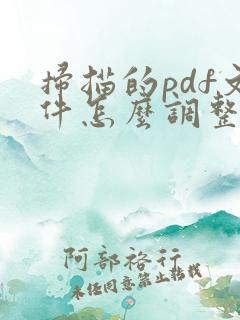 掃描的pdf文
件怎麼調整
阿部裕行
未經同意禁止轉載